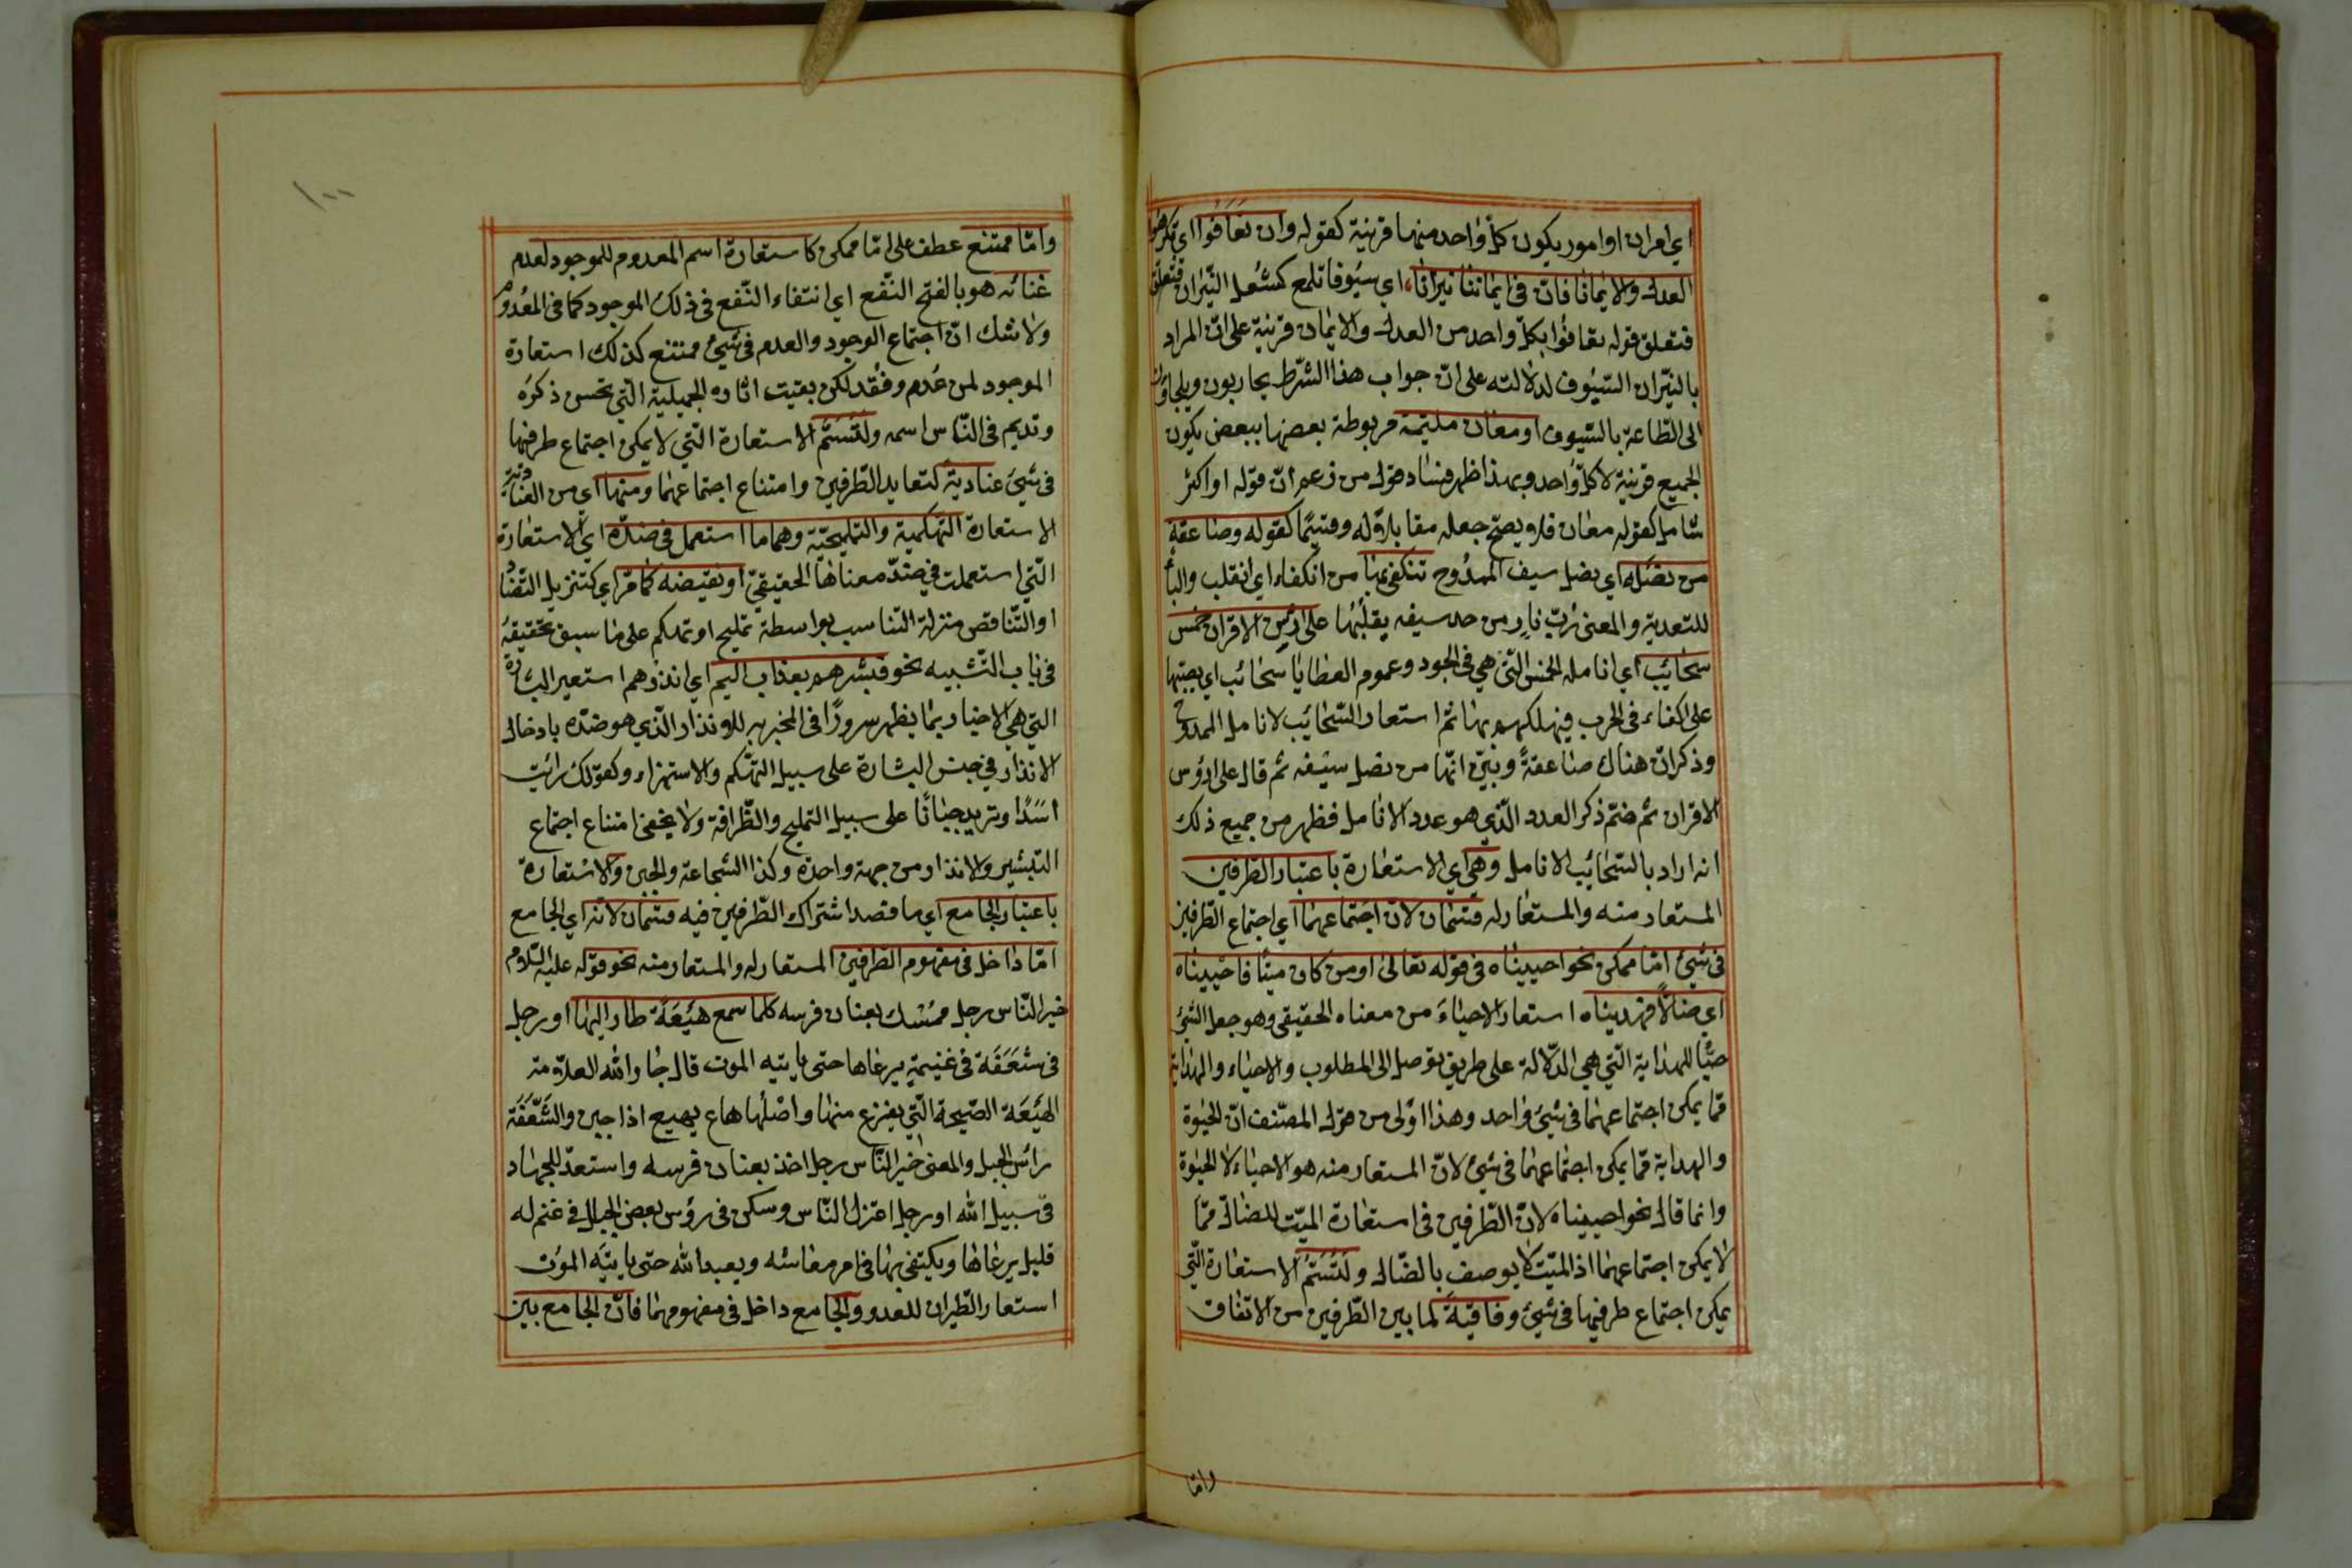 اي امران او امور يكون كلّ واحد منها قرنية كقوله وان تعافوا اي تكرهوا
العدل والايمانا فانّ فى ايماننا نيرانا، اي سيوفا تلمع كشعل النّيران فتعلق
فتعلق قوله تعافوا بكلّ واحد من العدل والايمان قرنية على انّ المراد
بالنيّران السّيوف لدلالته على انّ جواب هذا الشّرط يحاربون ويلجاؤن
الى الطّاعة بالسّيوف او معان ملتيمة مربوطة بعضها ببعض يكون
الجميع قرنية لا كلّ واحد وبهذا ظهر فساد قول من زعم انّ قوله او اكثر
شامل لقوله معان فلا يصحّ جعله مقابلا له وقسيمًا كقوله وصاعقة
من نصله اي نصل سيف الممدوح تنكفئ بها من انكفاء اي انقلب والبأ
للتعدية والمعنى ربّ نارٍ من حد سيفه يقلّبها على ارؤس الاقران خمس
سحائب اي انامله الخمس الّتى هي فى الجود وعموم العطايا سحائب اي يصبّها
على اكفاء فى الحرب فيهلكهم بها ثمّ استعار السّحائب لانامل الممدوح
وذكر انّ هناك صاعقةً وبيّن انّها من نصل سيفه ثم قال على ارؤس
الاقران ثم ختم ذكر العدد الّذي هو عدد الانامل فظهر من جميع ذلك
انه اراد بالسّحائب الانامل وهي اي الاستعارة باعتبار الطّرفين
المستعار منه والمستعار له قسمان لانّ اجتماعهما اي اجتماع الطّرفين
فى شيئ امّا ممكن نحو احييناه فى قوله تعالى او من كان ميتًا فاحييناه
اي ضالّا فهديناه استعار الاحياء من معناه الحقيقى وهو جعل الشّئ
حيًّا للهداية الّتي هي الدّلالة على طريق يوصل الى المطلوب والاحياء والهداية
ممّا يمكن اجتماعهما فى شيئ واحد وهذا اولى من قول المصنّف انّ الحيوة
والهداية ممّا يمكن اجتماعهما فى شيئ لانّ المستعار منه هو الاحياء لا الحيوة
وانما قال نحو احييناه لانّ الطّرفين فى استعارة الميّت للضالّ ممّا
لا يمكن اجتماعهما اذ الميّت لا يوصف بالضّال ولتسمّ الاستعارة الّتي
يمكن اجتماع طرفيها فى شيئ وفاقية لما بين الطّرفين من الاتفاق
وامّا
١٠٠
وامّا ممتنع عطف على امّا ممكن كاستعارة اسم المعدوم للموجود لعدم
غنائه هو بالفتح النّفع اي انتفاء النّفع فى ذلك الموجود كما فى المعدوم
ولا شك انّ اجتماع الوجود والعدم فى شيئ ممتنع كذلك استعارة
الموجود لمن عُدم وفُقد لكن بقيت اثاره الجميلية الّتي تحسن ذكره
وتديم فى النّاس اسمه ولتسمّ الاستعارة الّتي لا يمكن اجتماع طرفيها
فى شيئ عنادية لتعايد الطّرفين وامتناع اجتماعهما ومنها اي من العنادية
الاستعارة التّهكمية والتّمليحيّة وهما ما استعمل فى ضدّه اي الاستعارة
الّتي استعملت في ضدّ معناها الحقيقيّ او نقيضه كما مرّ اي كتنزيل التّضاد
او التّناقض منزلة التناسب بواسطة تمليح او تهكم على ما سبق تحقيقه
فى باب التّشبيه نحو فبشّرهم بعذاب اليم اي انذرهم استعير البشارة
التي هي الاخبار بما يظهر سرورًا فى المخبر به للانذار الّذي هو ضدّه بادخال
الانذار في جنس البشارة على سبيل التهكّم والاستهزاء وكقولك رائيت
اسدًا وتريد جبانًا على سبيل التمليح والظّرافة ولا يخفى امتناع اجتماع
التبشير والانذار من جهة واحدة وكذا الشجاعة والجبن والاستعارة
باعتبار الجامع اي ما قصد اشتراك الطّرفين فيه قسمان لانّه اي الجامع
امّا داخل فى مفهوم الطّرفين المستعار له والمستعار منه نحو قوله عليه السّلام
خير النّاس رجل ممسك بعنان فرسه كلّما سمع هَيْعَةً طار اليها او رجل
فى شَعَفَة فى غنيمةٍ يرعاها حتى ياتيه الموت قال جار الله العلّامة
الهَيْعَة الصّيحة الّتي يفزع منها واصلها هاع يهيع اذا جبن والشَّعَفَة
رائس الجبل والمعنى خير النّاس رجل اخذ بعنان فرسه واستعدّ للجهاد
فى سبيل الله او رجل اعتزل النّاس وسكن فى رؤس بعض الجبال فى غنم له
قليل يرعاها ويكتفى بها فى امر معاشه ويعبد الله حتى ياتيَه الموت
استعار الطّيران للعدو والجامع داخل فى مفهومهما فانّ الجامع بين